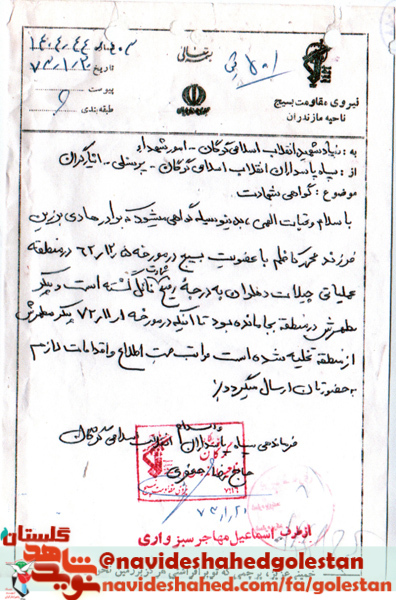 بسمه تعالی
شماره
تاریخ ۷۳/۱/۲۰
پیوست
طبقه بندی
نیروی مقاومت بسیج
ناحیه مازندران
به : بنیاد شهید انقلاب اسلامی گرگان - امور شهداء
از : سپاه پاسداران انقلاب اسلامی گرگان - پرسنلی - ایثارگران
موضوع : گواهی شهادت
با سلام و تحیات الهی ، بدینوسیله گواهی میشود که برادر هادی
فرزند محمد کاظم با عضویت بسیج در مورخه در منطقه
عملیاتی چیلات دهلران به درجه رفیع شهادت نائل گشته است و پیکر
مطهرش در منطقه بجا مانده بود تا آنکه در مورخه پیکر مطهرش
از منطقه تخلیه شده است مراتب جهت اطلاع و اقدامات لازم
به حضورتان ارسال میگردد
والسلام
فرماندهی سپاه پاسداران انقلاب اسلامی گرگان
حاج رضا جعفری
۷۳/۱/۲۰
از طرف اسماعیل مهاجر سبزواری
نوید شاهد گلستان
@navideshahedgolestan
navideshahed.com/fa/golestan